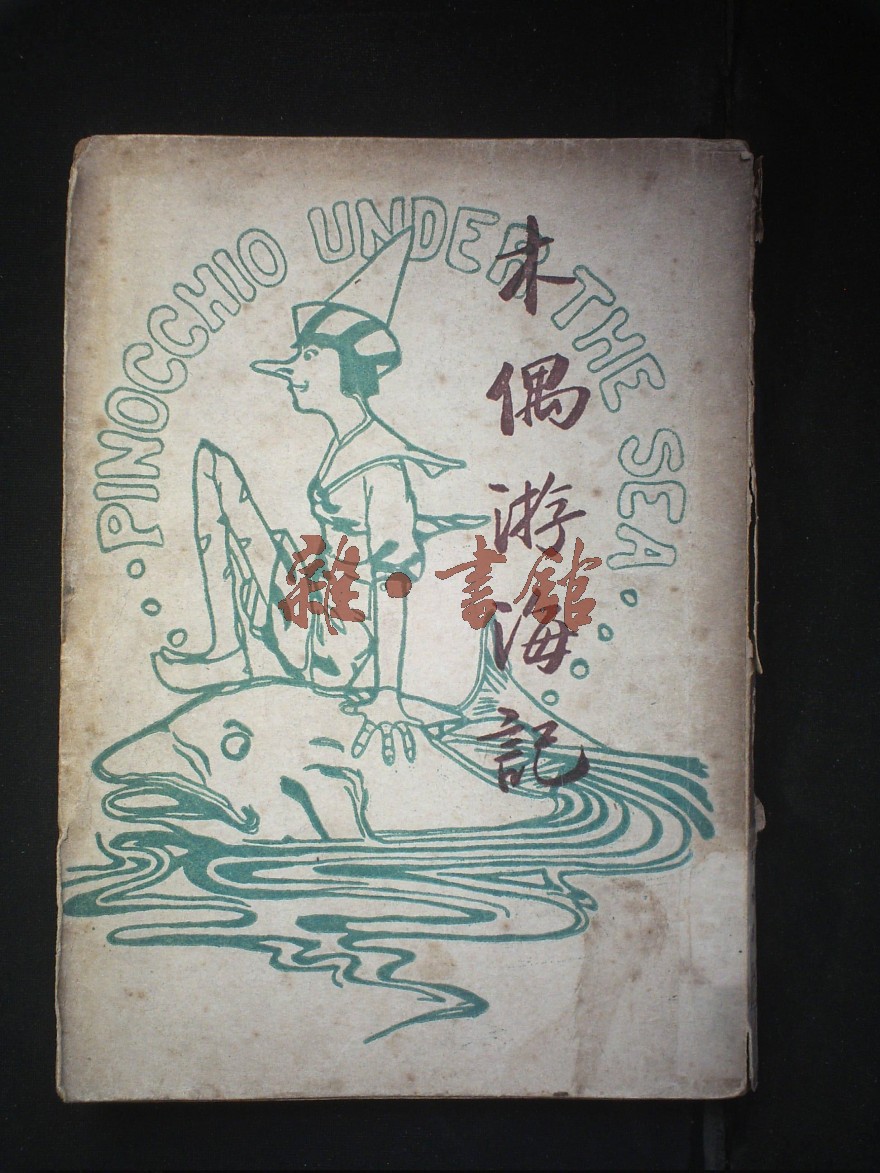 PINOCCHIO UNDER THE SEA
木偶游海記
雜·書館